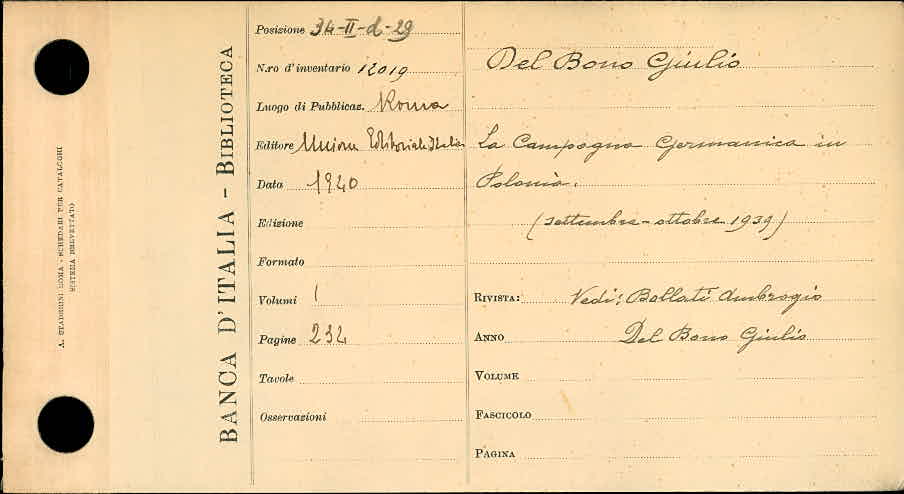 A. STADERINI ROMA - SCHEDARI PER CATALOGHI
SISTEMA BREVETTATO
BANCA D'ITALIA - BIBLIOTECA
Posizione 34-II-d-29
N.ro d'inventario 12019
Luogo di Pubblicaz. Roma
Editore Unione Editoriale Italia
Data 1940
Edizione
Formato
Volumi 1
Pagine 232
Tavole
Osservazioni
Del Bono Giulio
La Campagna Germanica in
Polonia.
(settembre - ottobre 1939)
RIVISTA: Vedi: Bollati Ambrogio
ANNO Del Bono Giulio
VOLUME
FASCICOLO
PAGINA